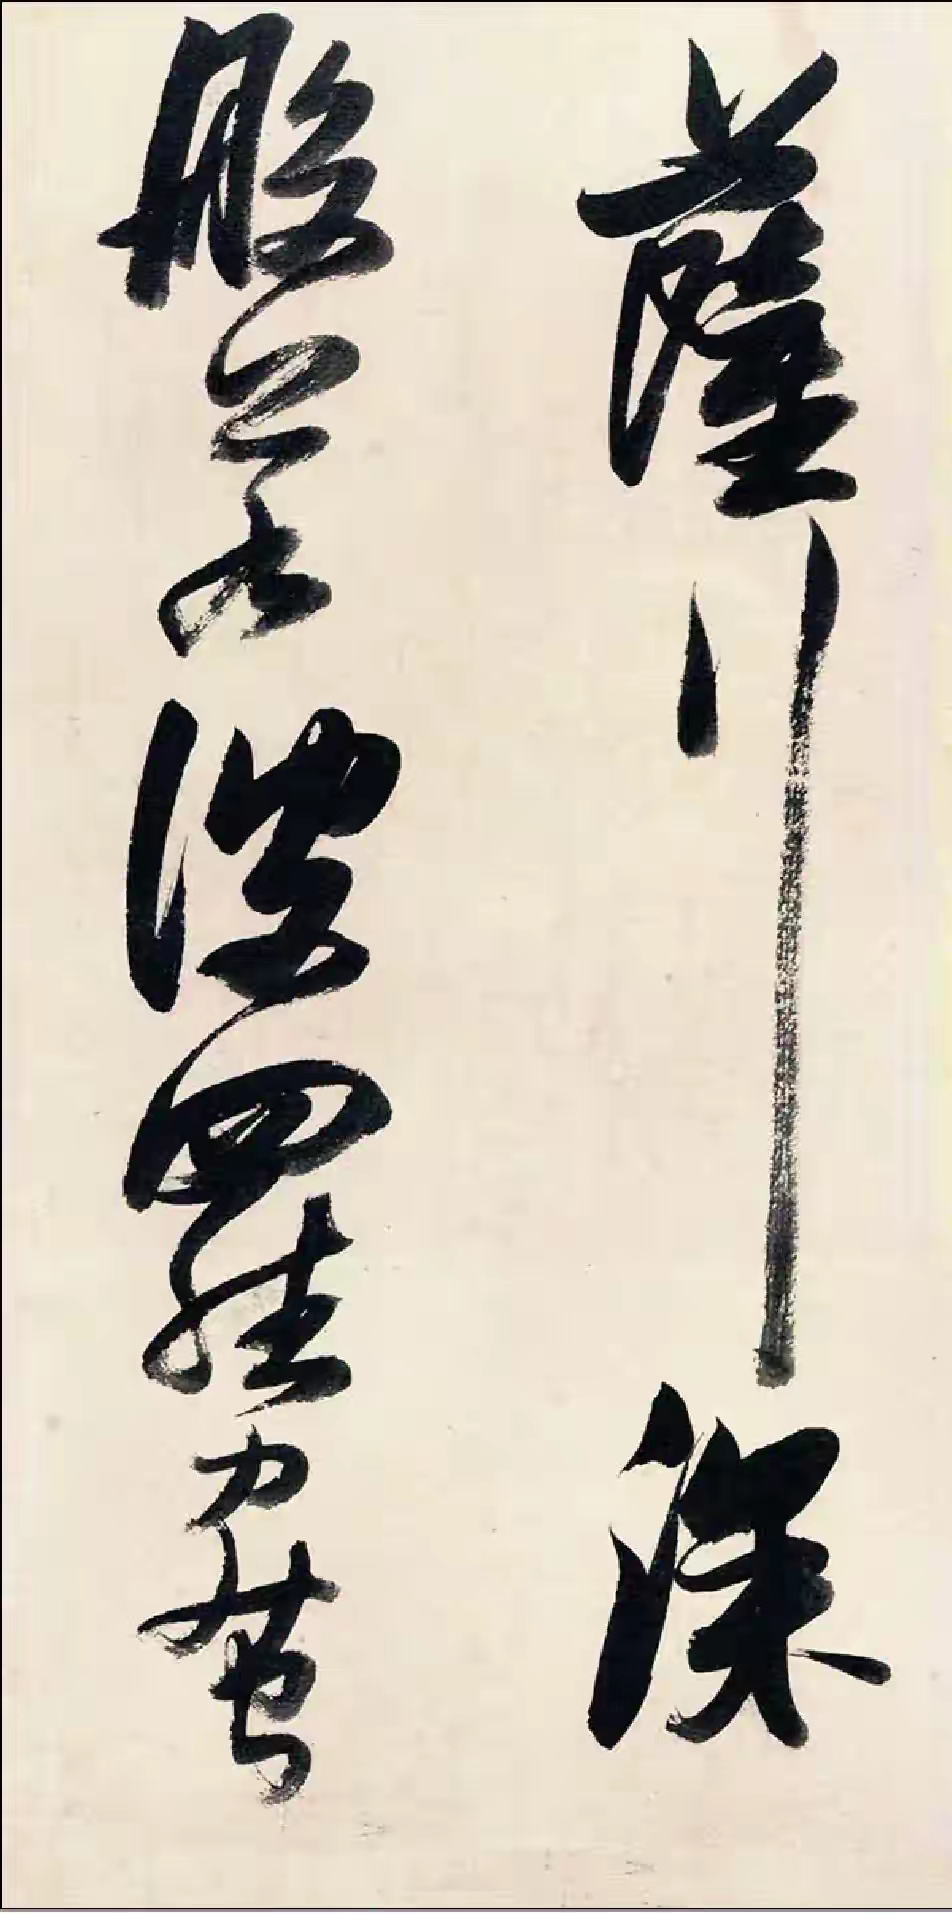 薩行深
般若波羅蜜